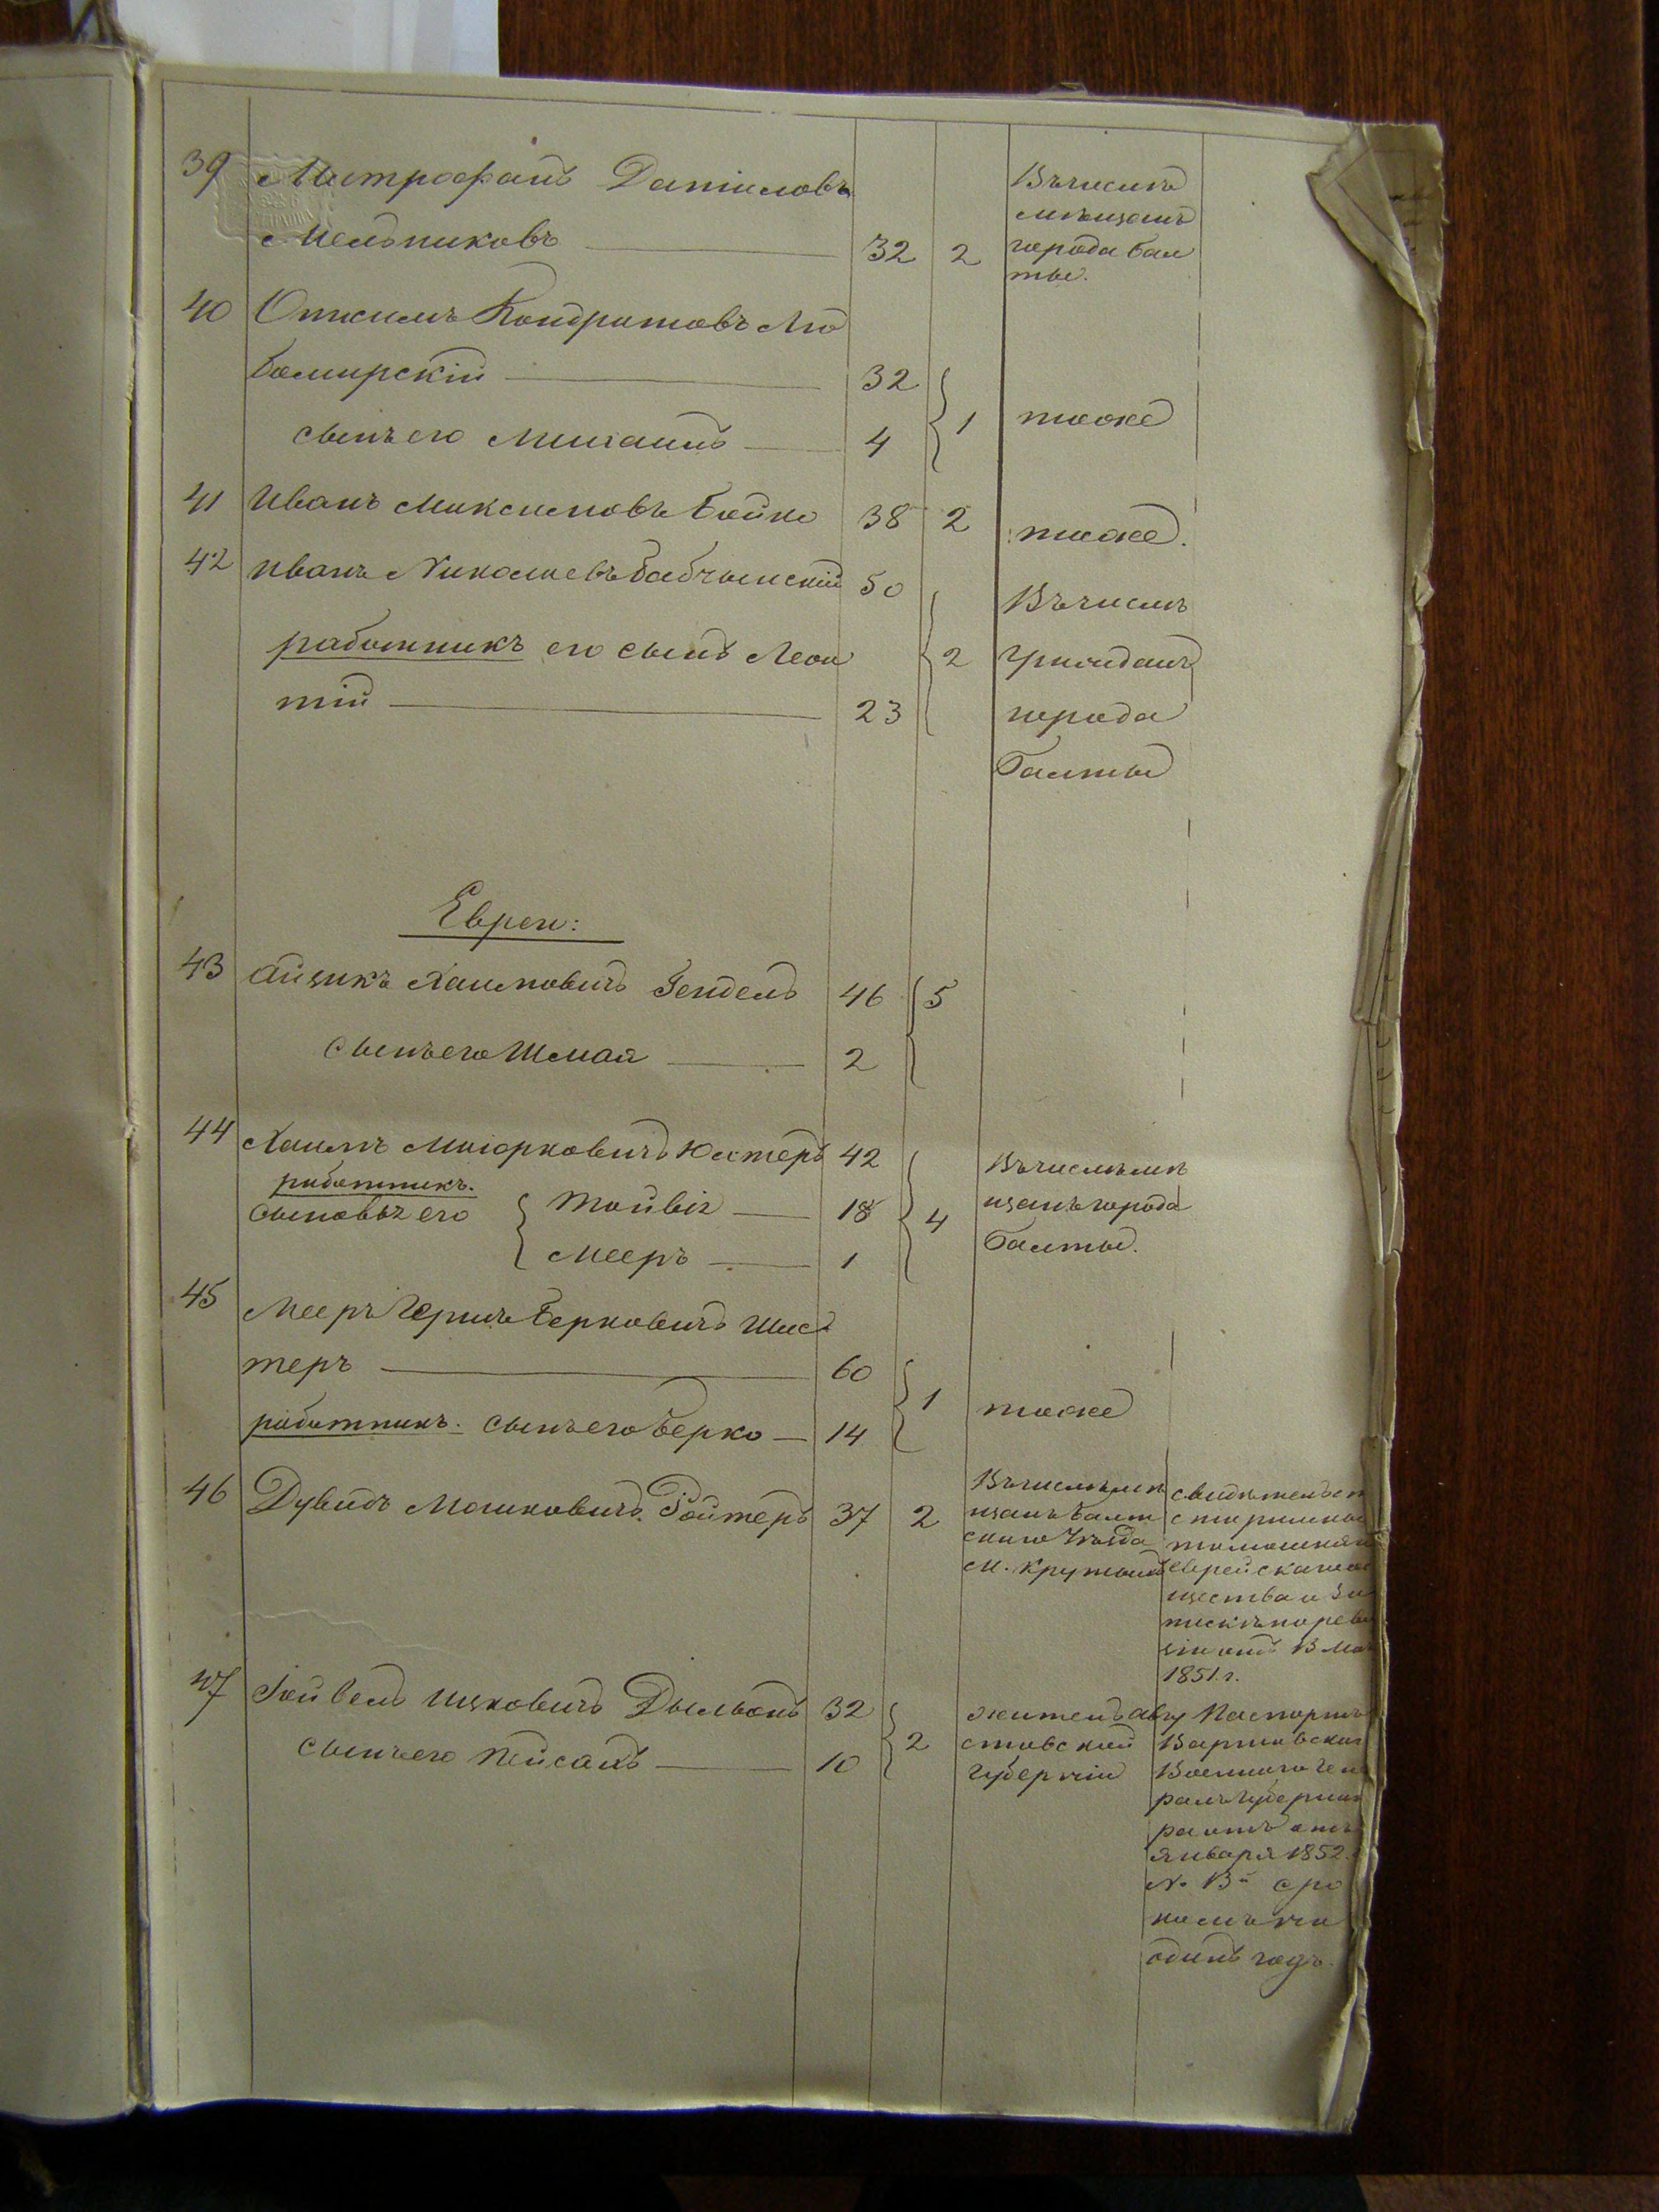 39 Митрофанъ Даниловъ
Мельниковъ 32 2
Въ числѣ
мѣщанъ
города Бал
ты.
40 Онисимъ Кондратовъ Лю
бомирскій 32
сынъ его Михаилъ 4
1 тоже
41 Иванъ Максимовъ Бойко 38 2 тоже.
42 Иванъ Николаевъ Бабчинскій 50
работникъ его сынъ Леон
тій 23
2
Въ числѣ
гражданъ
города
Балты
Евреи:
43 Айзикъ Хаимовичъ Гендель 46 5
сынъ его Шмая 2
44 Хаимъ Миіорковичъ 42
работникъ.
сыновья его Тойвіг 18
Мееръ 1
4
Въ числѣ мѣ
щанъ города
Балты.
45 Мееръ Гершъ Берковичъ Шус
теръ 60
работникъ. сынъ его Берко 14
1 тоже
46 Дувидъ Мошковичъ Ройтеръ 37 2
Въ числѣ мѣ
щанъ Балт
скаго Уѣзда
м. Крутыхъ
свидѣтельст

еврейскаго об
щества и За
пискѣ по реви
зіи отъ 13 Ма
1851 г.
47 Гойвель Ицковичъ 32
сынъ его Пейсахъ 10
2
житель Авгу
стовской
Губерніи
Паспортъ
Варшавскаг
Военнаго Ген
ралъ Губернат
отъ
Января 1852.
№ 13 сро
комъ на
одинъ годъ.